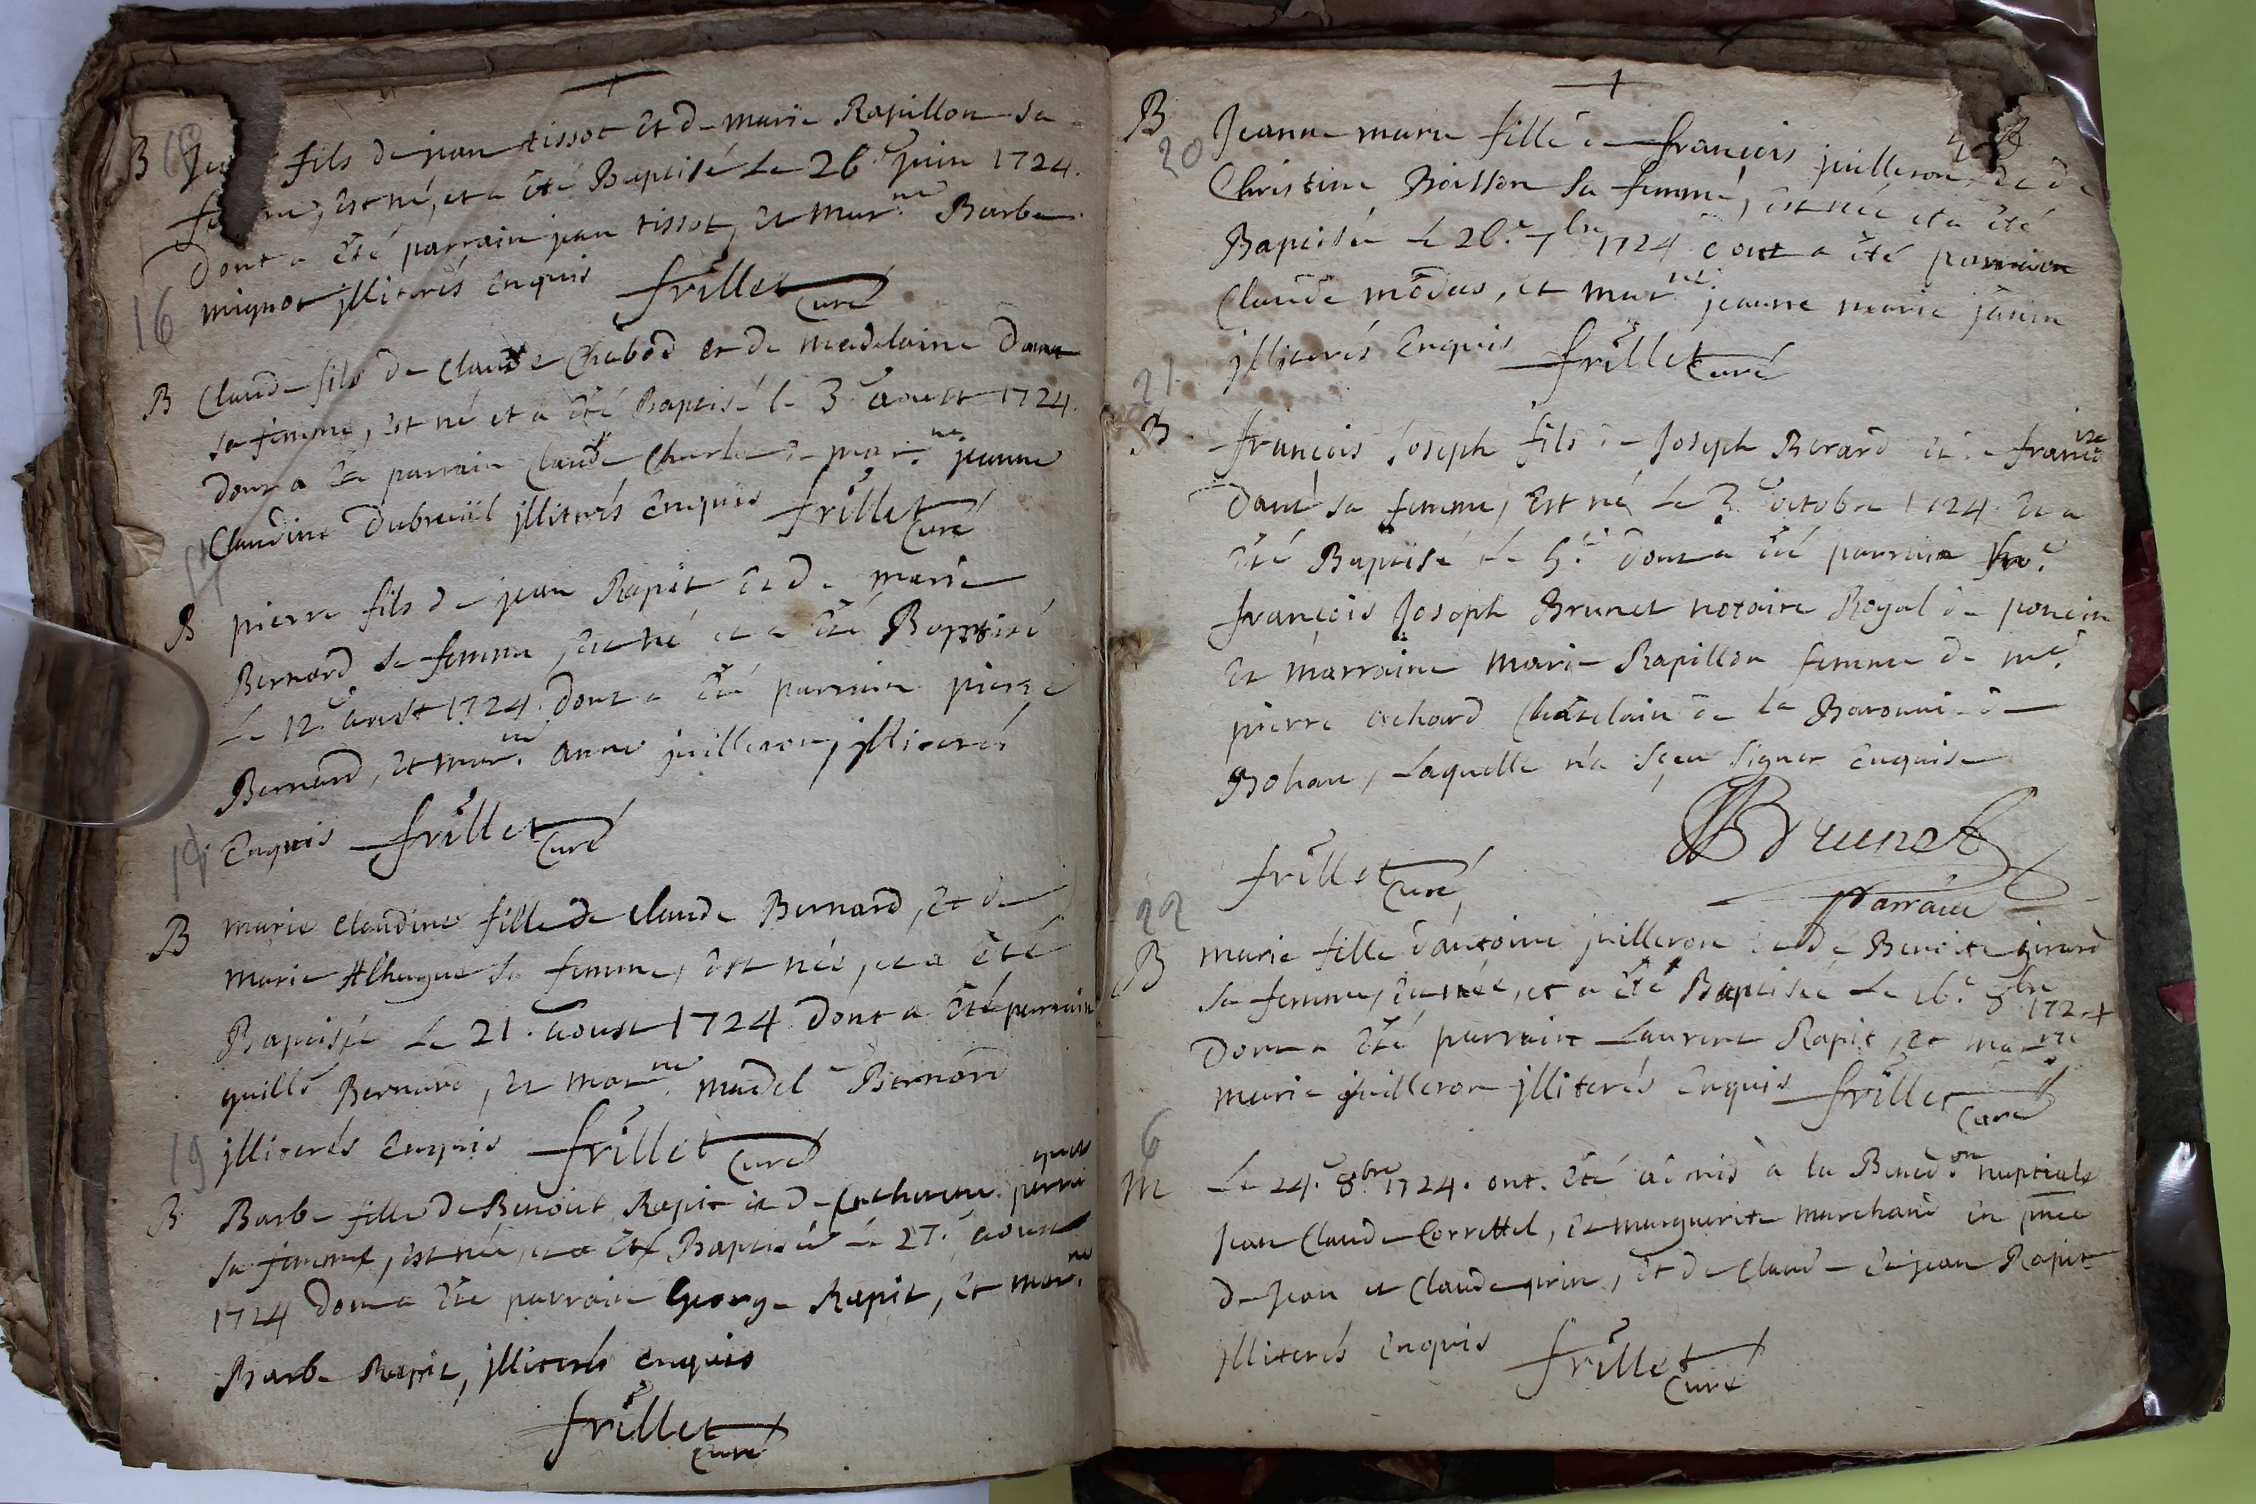 B fils de jean tissot et de marie Rapillon sa
est né, et a été Baptisé le 26 juin 1724.
dont a été parrain jean tissot, et marne Barbe
mignot jlliterés enquis frillet curé
16
B Claude fils de Claude Chabod et de madelaine
sa femme, est né et a été Baptisé le 3 aoust 1724.
dont a été parrain Claude Charle et marne jeanne
Claudine Dubreüil jlliterés enquis frillet curé
17
B pierre fils de jean Rapit et de marie
Bernard sa femme, est né et a été Baptisé
le 12e aoust 1724. dont a été parrain pierre
Bernard, et marne anne juilleron, jlliterés
enquis frillet curé
B marie claudine fille de claude Bernard, et de
marie sa femme, est née, et a été
Baptisée le 21. aoust 1724 dont a été parrain
guille Bernard, et marne madel Bernard
jlliterés enquis frillet curé
19
B Barbe fille de Benoist Rapit et de
sa femme, est née, et a été Baptisée le 27. aoust
1724 dont a été parrain George Rapit, et marne
Barbe Rapit, jlliterés enquis
frillet curé
B 20 Jeanne marie fille de françois juilleron, et de
Christine Boisson sa femme, est née et a été
Baptisée le 26.e 7bre 1724 dont a été parrain
Claude et marne jeanne marie janin
jlliterés enquis frillet curé
21
B françois Joseph fils de Joseph Berard et de francoise
sa femme, est né le 3. octobre 1724. et a
été Baptisé le 5.e dont a été parrain
françois Joseph Brunet notaire Royal de poncin
et marraine marie Rapillon femme de me
pierre ochard Châtelain de la Baronnie de
Bohan, laquelle n'a sçeu signer enquise
Brunet
frillet curé
parrain
22
B marie fille d'antoine juilleron et de Benoite girard
sa femme, est née, et a été Baptisée le 16.e 8bre 1724
dont a été parrain Laurent Rapit, et marne
marie juilleron jlliterés enquis frillet curé
6
M Le 24.e 8bre 1724. ont été admis à la Bened.on nuptiale
jean Claude Correttel, et marguerite marchand en pnce
de jean et Claude perin, et de Claude et jean Rapit
jlliterés enquis frillet curé